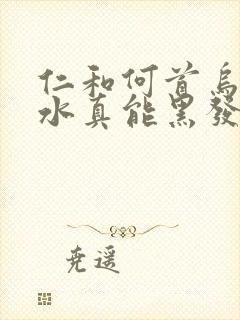 仁和何首烏
水真能黑發
尭遥